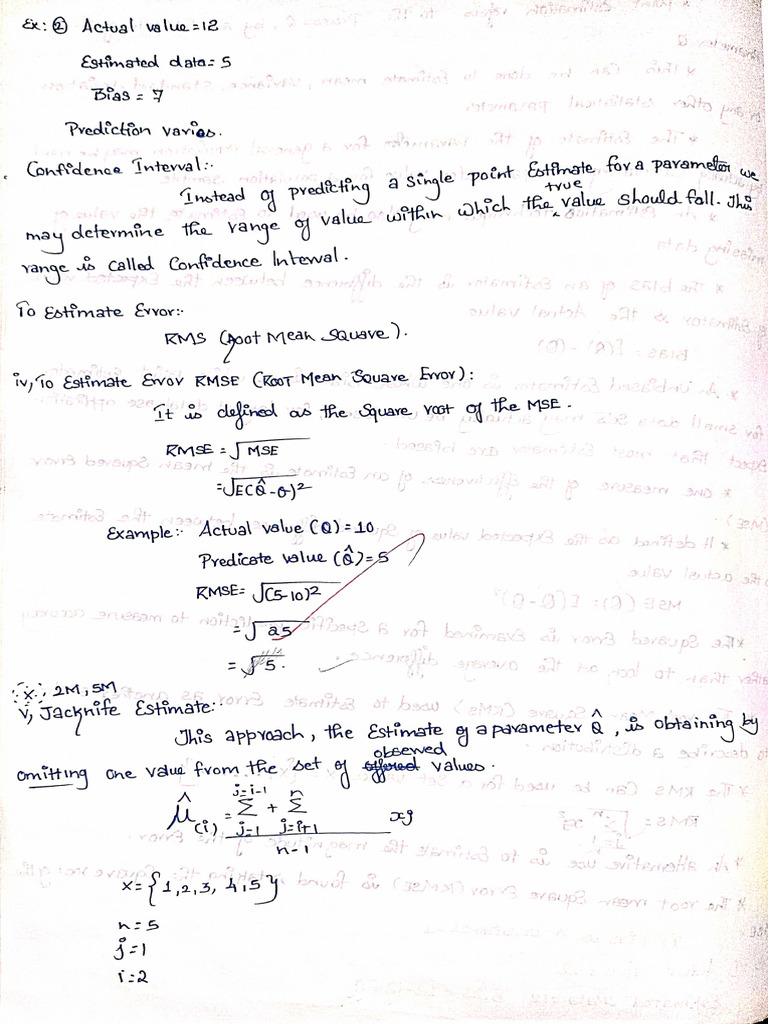 Ex: ② Actual value = 12
Estimated data = 5
Bias = 7
Prediction varies.
Confidence Interval:-
Instead of predicting a single point Estimate for a parameter we
may determine the range of value within which the true value should fall. This
range is called Confidence Interval.
To Estimate Error:-
RMS (Root Mean Square).
iv, To Estimate Error RMSE (ROOT Mean Square Error):
It is defined as the Square root of the MSE.
RMSE = √MSE
= √E(Q̂-Q)²
Example:- Actual value (Q) = 10
Predicate value (Q̂) = 5
RMSE = √(5-10)²
= √25
= √5.
∴x∴, 2M, 5M
v, Jacknife Estimate:-
This approach, the Estimate of a parameter Q̂, is obtaining by
omitting one value from the set of offered observed values.
μ̂(i) = j=i-1 Σ j=1 + n Σ j=i+1 xj
n-1
x = {1,2,3, 4,5}
n = 5
j = 1
i = 2